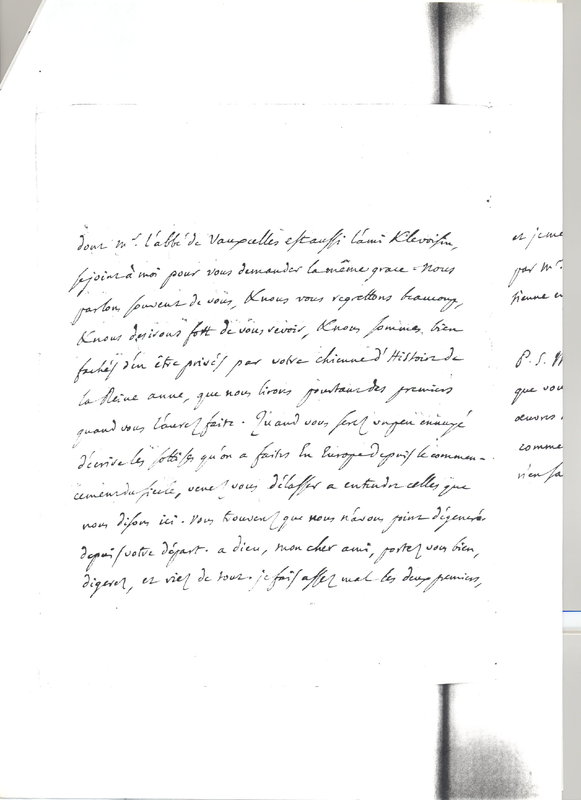 dont mr. l'abbé de Vauxcelles est aussi l'ami & le voisin,
se joint à moi pour vous demander la même grace. Nous
parlons souvent de vous, & nous vous regrettons beaucoup,
& nous desirons fort de vous revoir, & nous sommes bien
fachés d'en être privés par votre chienne d'Histoire de
la Reine anne, que nous lirons pourtant des premiers
quand vous l'aurez faite. Quand vous serez un peu ennuyé
d'écrire les sottises qu'on a faites En Europe depuis le commen-
cement du siecle, venez vous délasser a entendre celles que
nous disons ici. Vous trouverez que nous n'avons point dégeneré
depuis votre départ. a dieu, mon cher ami, portez vous bien,
digerez, et riez de tout. je fais assez mal les deux premiers,
et je me
par Mr.
sienne e
P. S.
que vou
œuvres
comme
rien